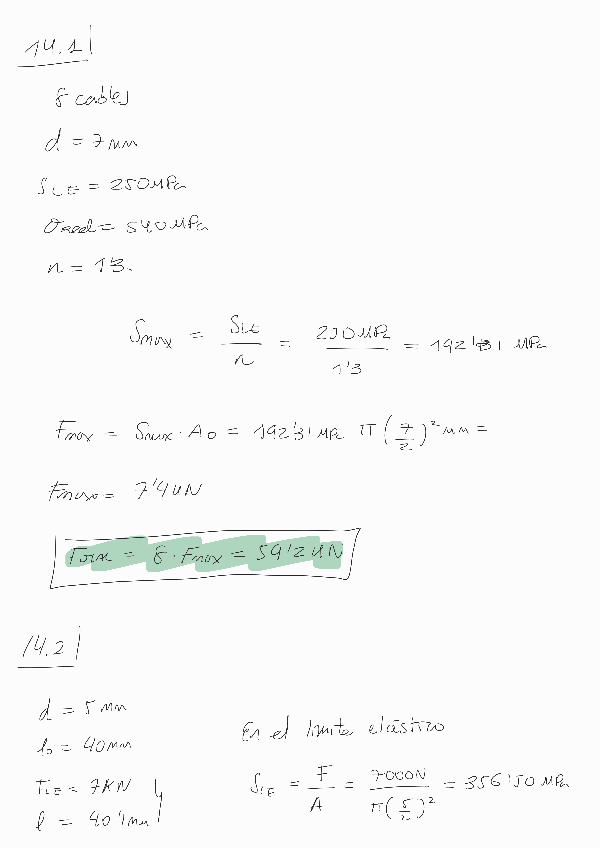 14.1
8 cables
d = 7 mm
S LE = 250 MPa
σ = 540 MPa
n = 1'3.
Smax = SLE / n = 250 MPa / 1'3 = 192'31 MPa
Fmax = Smax · A0 = 192'31 MPa π (7/2)² mm =
Fmax = 7'4 kN
= 8 · Fmax = 59'2 kN
14.2
d = 5 mm
l0 = 40 mm
FLE = 7KN
l = 40'1 mm
En el límite elástico
SLE = F / A = 7000N / π(5/2)² = 356'50 MPa